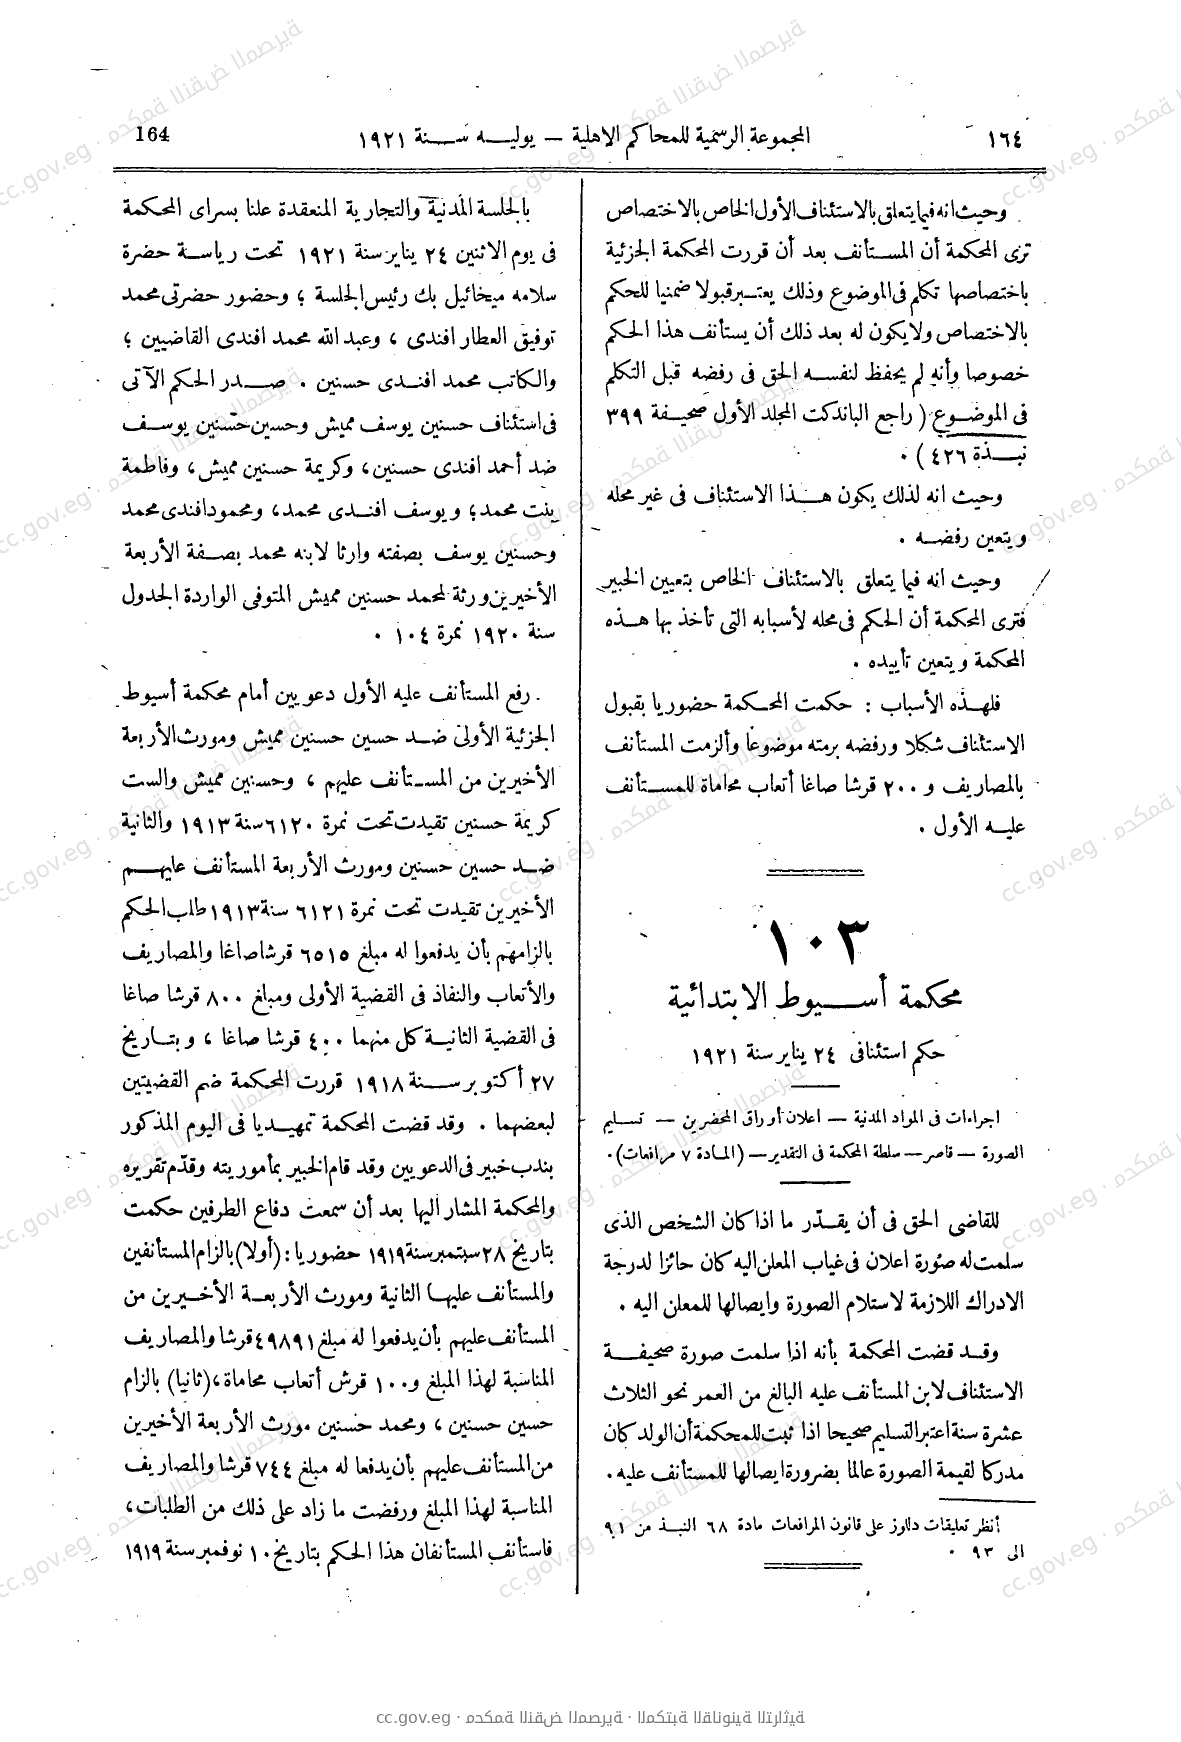 ١٦٤
المجموعة الرسمية للمحاكم الاهلية — يوليه سنة ١٩٢١
164
وحيث انه فيما يتعلق بالاستئناف الأول الخاص بالاختصاص
ترى المحكمة أن المستأنف بعد أن قررت المحكمة الجزئية
باختصاصها تكلم فى الموضوع وذلك يعتبر قبولا ضمنيا للحكم
بالاختصاص ولا يكون له بعد ذلك أن يستأنف هذا الحكم
خصوصا وأنه لم يحفظ لنفسه الحق فى رفضه قبل التكلم
فى الموضوع (راجع الباندكت المجلد الأول صحيفة ٣٩٩
نبذة ٤٢٦) ٠
وحيث انه لذلك يكون هذا الاستئناف فى غير محله
ويتعين رفضه ٠
وحيث انه فيما يتعلق بالاستئناف الخاص بتعيين الخبير
فترى المحكمة أن الحكم فى محله لأسبابه التى تأخذ بها هذه
المحكمة ويتعين تأييده ٠
فلهذه الأسباب : حكمت المحكمة حضوريا بقبول
الاستئناف شكلا ورفضه برمته موضوعا وألزمت المستأنف
بالمصاريف و ٢٠٠ قرشا صاغا أتعاب محاماة للمستأنف
عليه الأول ٠
١٠٣
محكمة أسيوط الابتدائية
حكم استئنافى ٢٤ يناير سنة ١٩٢١
اجراءات فى المواد المدنية — اعلان أوراق المحضرين — تسليم
الصورة — قاصر — سلطة المحكمة فى التقدير — (المادة ٧ مرافعات) ٠
للقاضى الحق فى أن يقدّر ما اذا كان الشخص الذى
سلمت له صورة اعلان فى غياب المعلن اليه كان حائزا لدرجة
الادراك اللازمة لاستلام الصورة وايصالها للمعلن اليه ٠
وقد قضت المحكمة بأنه اذا سلمت صورة صحيفة
الاستئناف لابن المستأنف عليه البالغ من العمر نحو الثلاث
عشرة سنة اعتبر التسليم صحيحا اذا ثبت للمحكمة أن الولد كان
مدركا لقيمة الصورة عالما بضرورة ايصالها للمستأنف عليه ٠
أنظر تعليقات دالوز على قانون المرافعات مادة ٦٨ النبذ من ٩١
الى ٩٣ ٠
بالجلسة المدنية والتجارية المنعقدة علنا بسراى المحكمة
فى يوم الاثنين ٢٤ يناير سنة ١٩٢١ تحت رياسة حضرة
سلامه ميخائيل بك رئيس الجلسة ؛ وحضور حضرتى محمد
توفيق العطار افندى ، وعبد الله محمد افندى القاضيين ؛
والكاتب محمد افندى حسنين ٠ صدر الحكم الآتى
فى استئناف حسنين يوسف مميش وحسين حسنين يوسف
ضد أحمد افندى حسنين ، وكريمة حسنين مميش ، وفاطمة
بنت محمد ؛ ويوسف افندى محمد ، ومحمود افندى محمد
وحسنين يوسف بصفته وارثا لابنه محمد بصفة الأربعة
الأخيرين ورثة لمحمد حسنين مميش المتوفى الواردة الجدول
سنة ١٩٢٠ نمرة ١٠٤ ٠
رفع المستأنف عليه الأول دعويين أمام محكمة أسيوط
الجزئية الأولى ضد حسين حسنين مميش ومورث الأربعة
الأخيرين من المستأنف عليهم ، وحسنين مميش والست
كريمة حسنين تقيدت تحت نمرة ٦١٢٠ سنة ١٩١٣ والثانية
ضد حسين حسنين ومورث الأربعة المستأنف عليهم
الأخيرين تقيدت تحت نمرة ٦١٢١ سنة ١٩١٣ طلب الحكم
بالزامهم بأن يدفعوا له مبلغ ٦٥١٥ قرشا صاغا والمصاريف
والأتعاب والنفاذ فى القضية الأولى ومبلغ ٨٠٠ قرشا صاغا
فى القضية الثانية كل منهما ٤٠٠ قرشا صاغا ، وبتاريخ
٢٧ أكتوبر سنة ١٩١٨ قررت المحكمة ضم القضيتين
لبعضهما ٠ وقد قضت المحكمة تمهيديا فى اليوم المذكور
بندب خبير فى الدعويين وقد قام الخبير بمأموريته وقدّم تقريره
والمحكمة المشار اليها بعد أن سمعت دفاع الطرفين حكمت
بتاريخ ٢٨ سبتمبر سنة ١٩١٩ حضوريا : (أولا) بالزام المستأنفين
والمستأنف عليها الثانية ومورث الأربعة الأخيرين من
المستأنف عليهم بأن يدفعوا له مبلغ ٤٩٨٩١ قرشا والمصاريف
المناسبة لهذا المبلغ و١٠٠ قرش أتعاب محاماة ، (ثانيا) بالزام
حسين حسنين ، ومحمد حسنين مورث الأربعة الأخيرين
من المستأنف عليهم بأن يدفعا له مبلغ ٧٤٤ قرشا والمصاريف
المناسبة لهذا المبلغ ورفضت ما زاد على ذلك من الطلبات ،
فاستأنف المستأنفان هذا الحكم بتاريخ ١٠ نوفمبر سنة ١٩١٩
cc.gov.eg · محكمة النقض المصرية · المكتبة القانونية التراثية